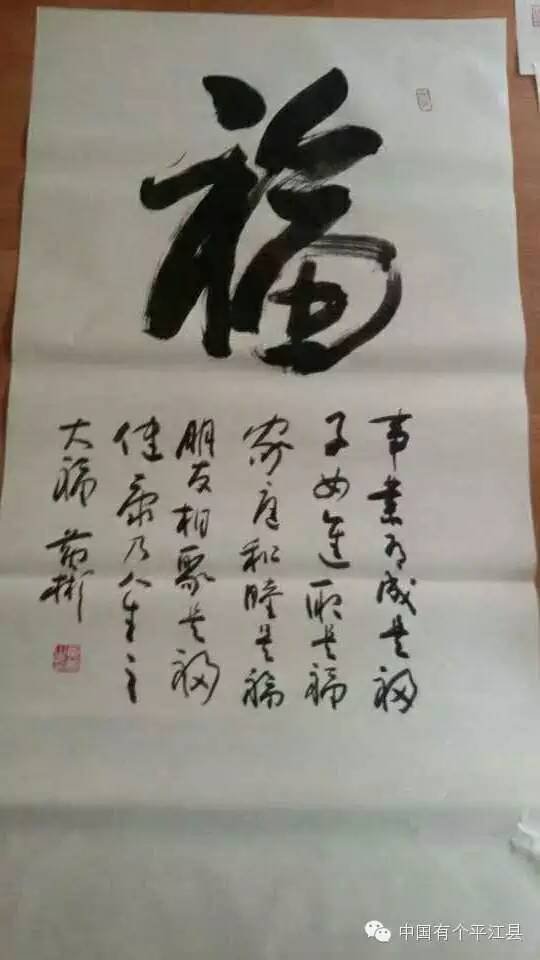 福
事业有成是福
子女進取是福
家庭和睦是福
朋友相聚是福
健康乃人生之
大福 黄彬
中国有个平江县